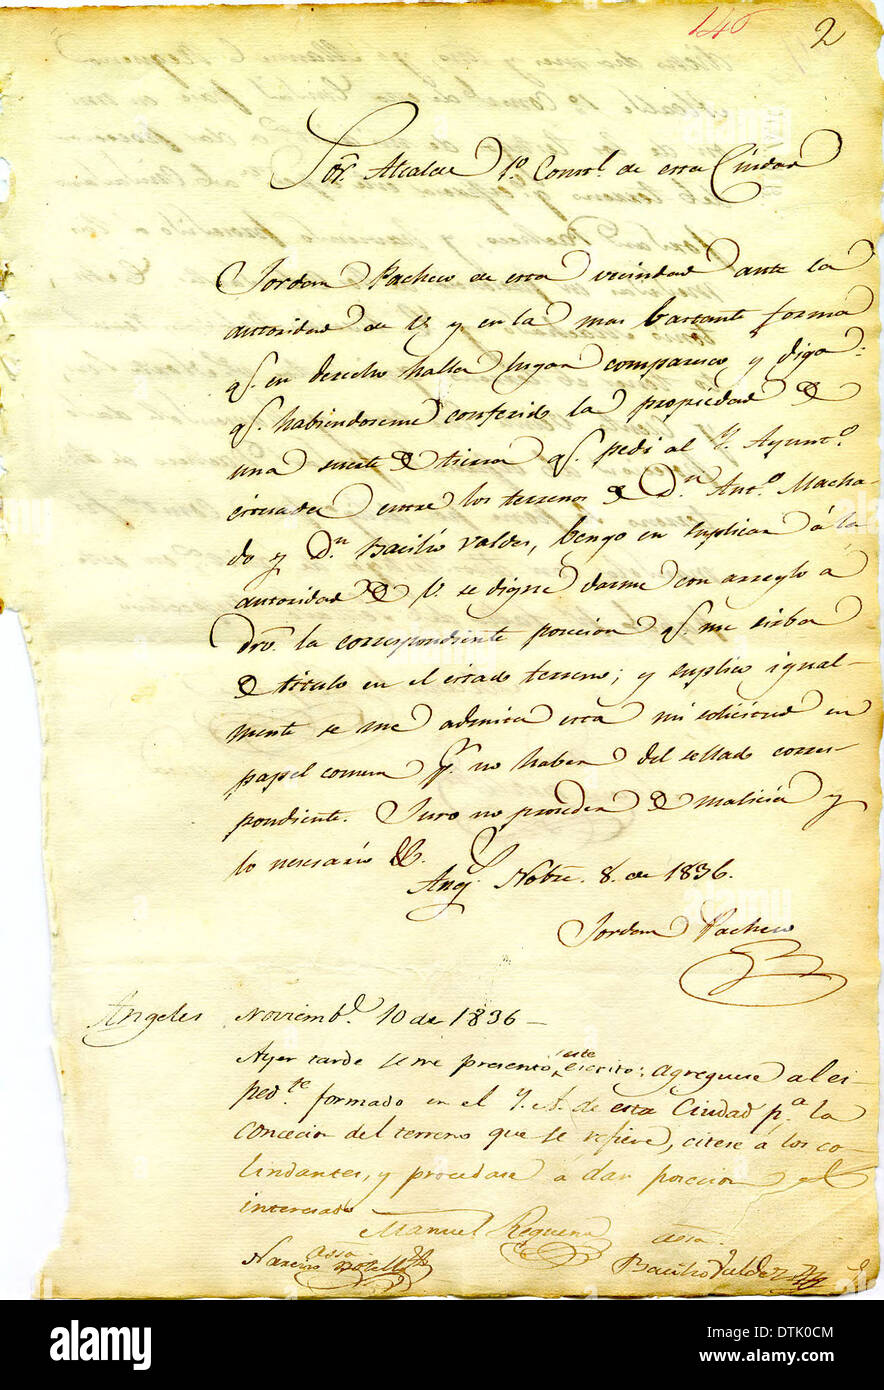 146
2
Sor. Alcalde 1o. Constl. de esta Ciudad
Jordan Pacheco de esta vecindad ante la
autoridad de V. y en la mas bastante forma
q. en derecho halla lugar comparesco, y digo:
q. habiendoseme conferido la propiedad de
una suerte de tierra q. pedi al Y. Ayunto.
cituada entre los terrenos de Dn. Anto. Macha-
do y Dn. Bacilio Valdes, bengo en suplicar á la
autoridad de V. se digne darme con arreglo á
dro. la correspondiente poscicion q. me sirba
de titulo en el citado terreno; y suplico igual-
mente se me admita esta mi solicitud en
papel comun pr. no haber del sellado corres-
pondiente. Juro no proseder de malicia y
lo nesesario &.
Ang. Nobre. 8. de 1836.
Jordan Pacheco
Angeles Noviembe. 10 de 1836 –
Ayer tarde se me presentó este escrito: agreguese al es-
pedte. formado en el Y. A. de esta Ciudad pa. la
concecion del terreno que se refiere, citese á los co-
lindantes, y procedase á dar poscicion al
interesado
Manuel Requena
assa. assa.
Narciso Botello Bacilio Valdez
alamy
Image ID: DTK0CM
www.alamy.com